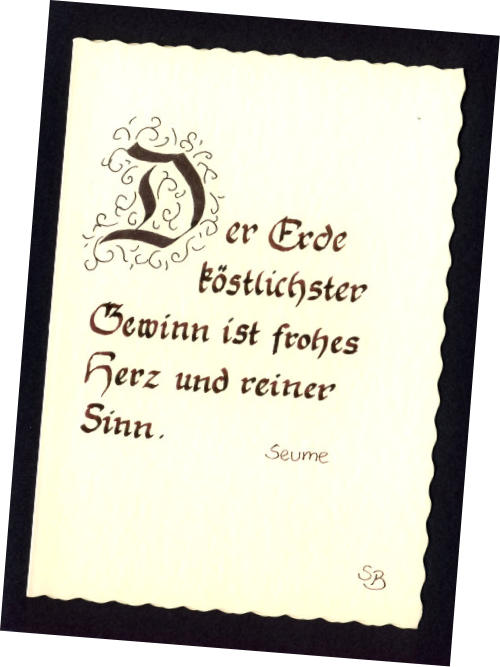 Der Erde
köstlichster
Gewinn ist frohes
Herz und reiner
Sinn.
Seume
SB